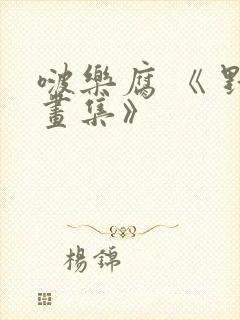 啵樂腐《
畫集》
楊錦